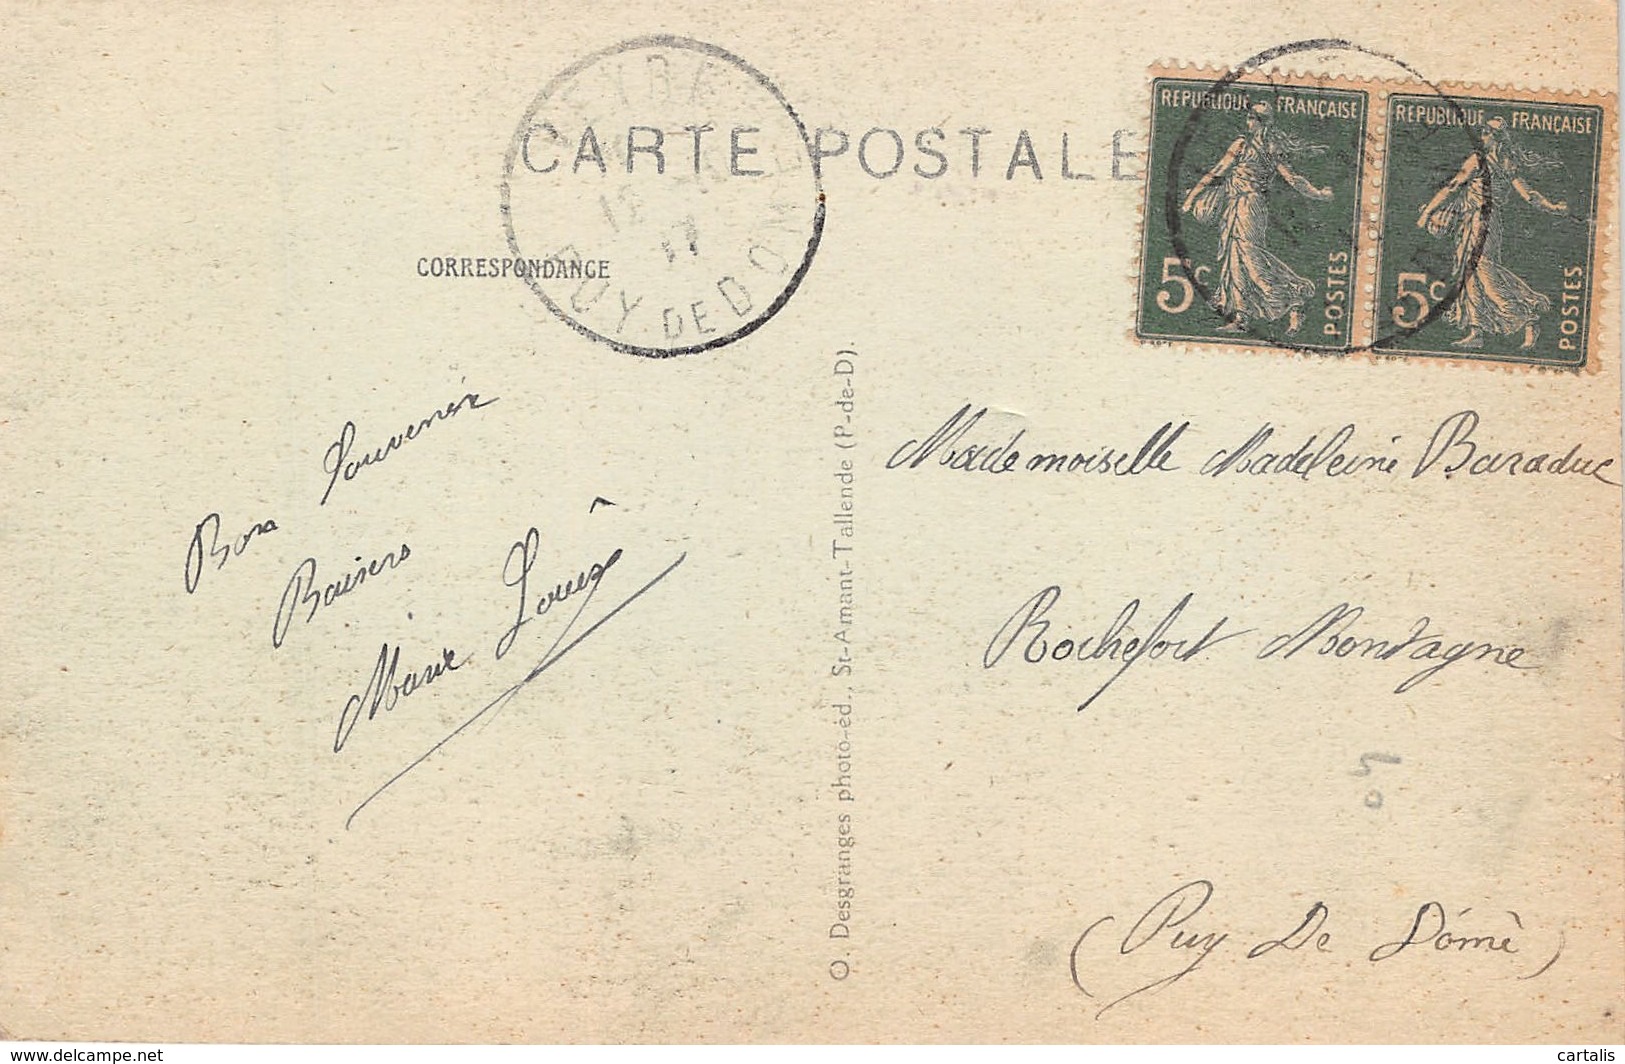 CARTE POSTALE
CORRESPONDANCE
PUY-DE-DOME
12
17
REPUBLIQUE FRANÇAISE
5c
POSTES
REPUBLIQUE FRANÇAISE
5c
POSTES
Bons Souvenir
Baisers
Marie Louise
O. Desgranges photo-éd., St-Amant-Tallende (P-de-D).
Mademoiselle Madeleine Baraduc
Rochefort Montagne
(Puy De Dôme)
www.delcampe.net
cartalis